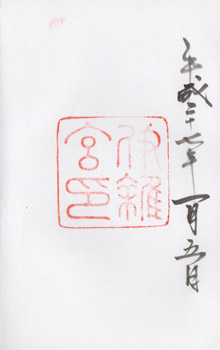 平成二十七年一月五日
伊雜
宮印